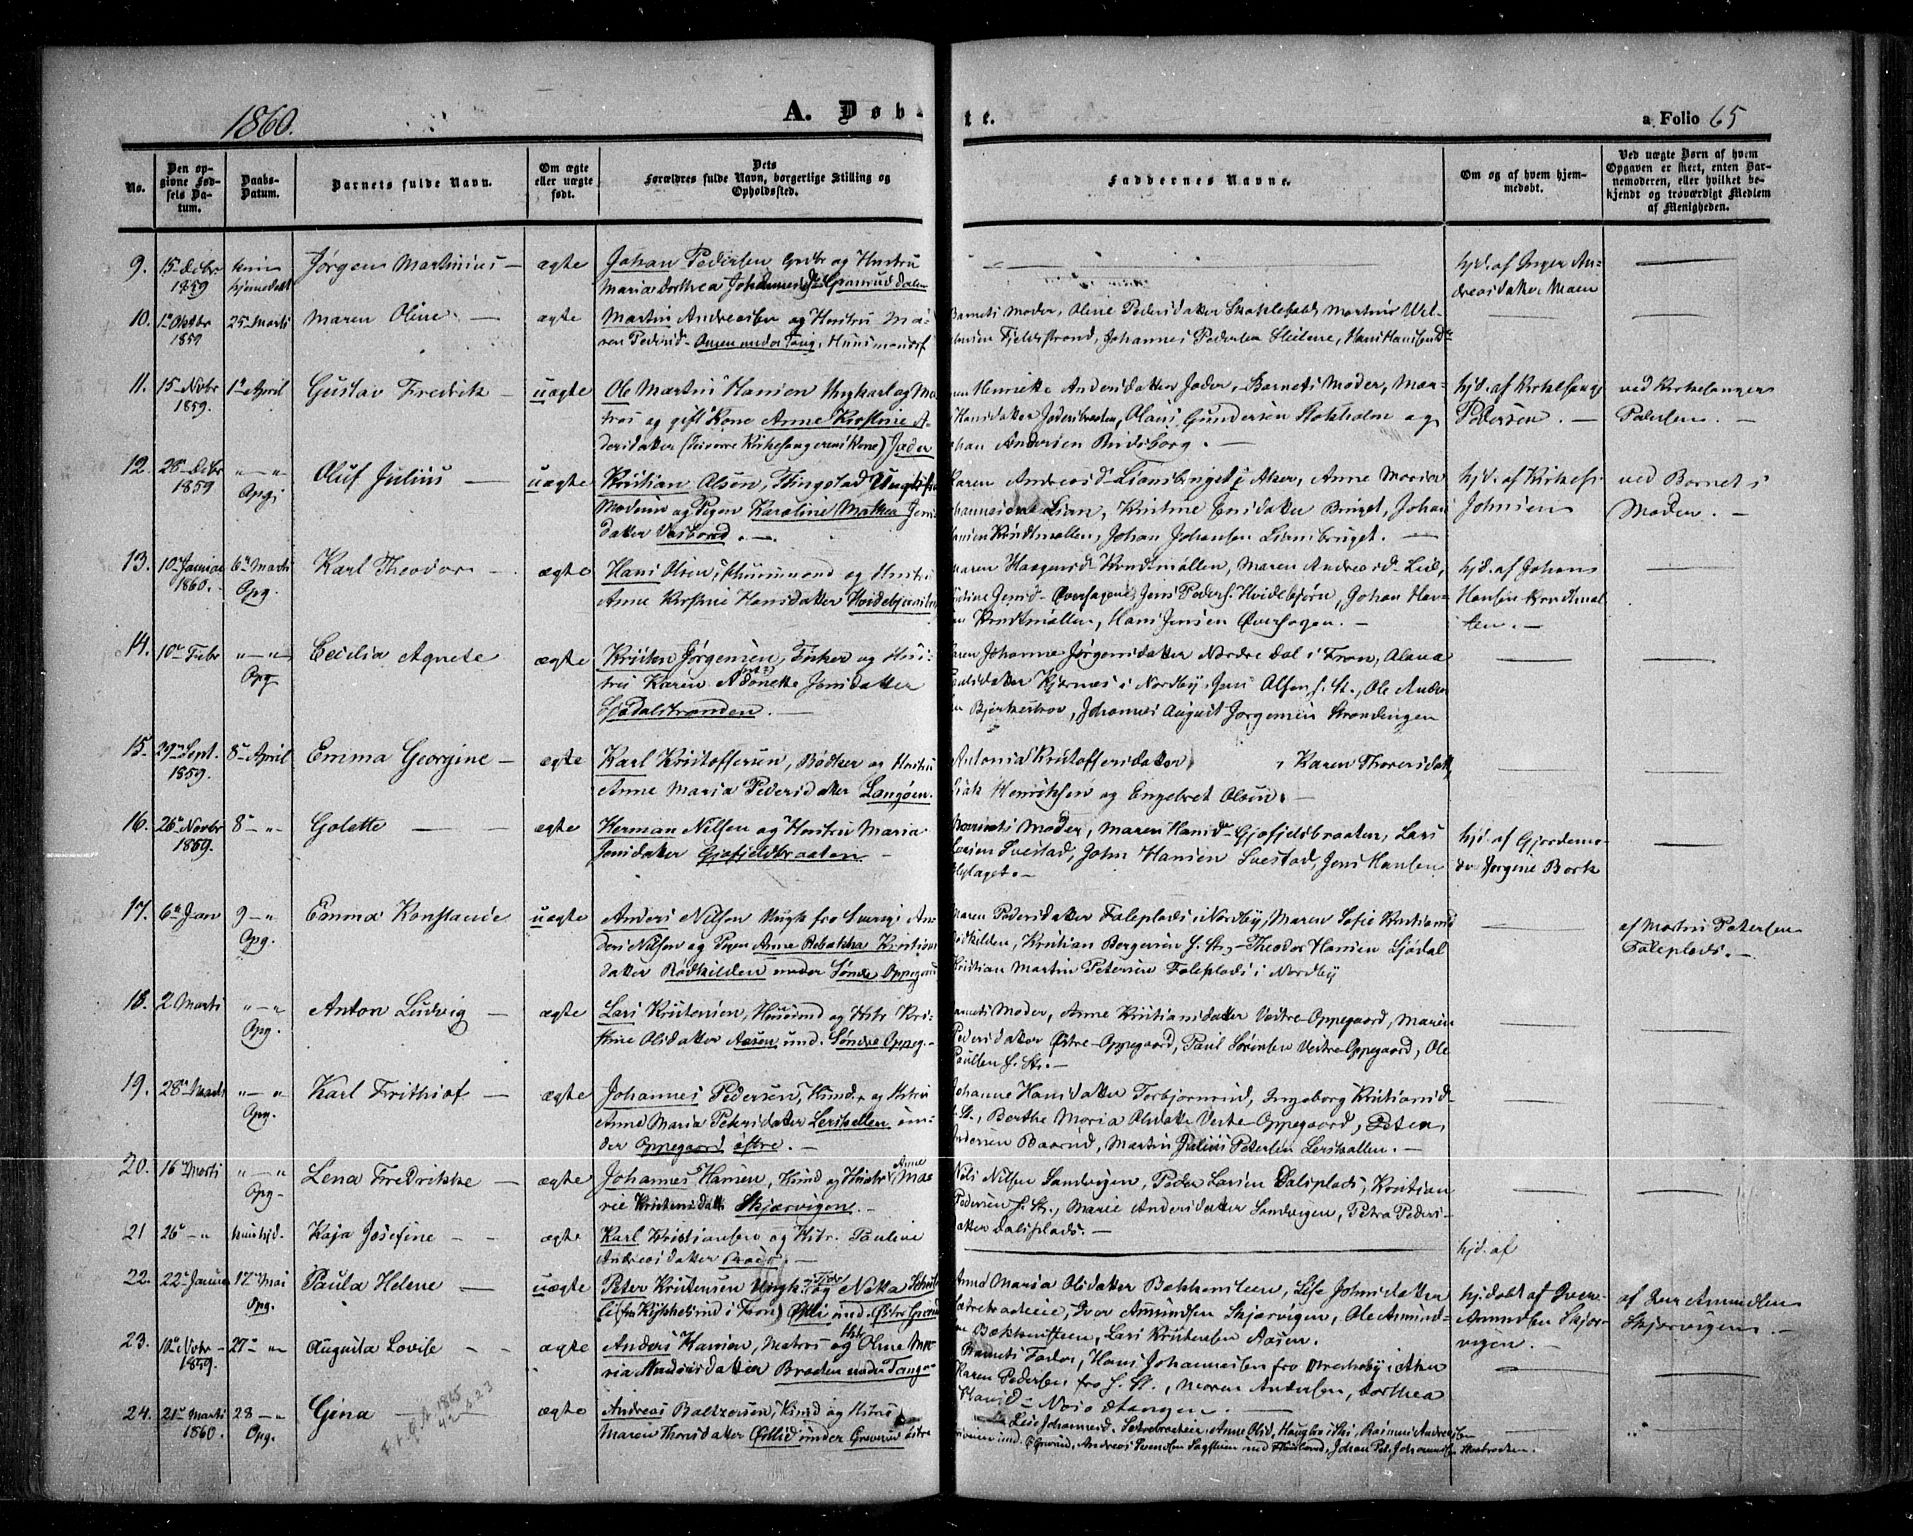 1860.
A. Døb-
te.
a. Folio 65
No.
Den op-
givne Fød-
sels Da-
tum.
Daabs-
Datum.
Barnets fulde Navn.
Om ægte
eller uægte
født.
Dets
Forældres fulde Navn, borgerlige Stilling og
Opholdssted.
Faddernes Navne.
Om og af hvem hjem-
medøbt.
Ved uægte Børn af hvem
Opgaven er skeet, enten Bar-
nemoderen, eller hvilket be-
kjendt og troværdigt Medlem
af Menigheden.
9. 15 Debr
1859
kun
hjemedøbt
Jørgen Martinius
ægte
Johan Pedersen Grdbr og Hustru
Maria Dorthea Johannesd Granruddalen
hjd. af Inger An-
dreasdatter Moen
10. 1 Oktbr
1859
25 Marts
Maren Oline
ægte
Martin Andreassen og Hustru Ma-
ren Pedersd Aasen under Tang, Huusmandsf
Barnets Moder, Oline Pedersdatter
Fjeldstrand, Johannes Pedersen
11. 15 Novbr
1859.
1 April
Gustav Fredrik
uægte
Ole Martin Hansen Ungkarl og Ma-
tros og gift Kone Anne Kirstine A-
dersdatter (Kirkesangerens Kone) Jader
Henrikke Andersdatter Jader, Barnets Moder, Mar-
Hansdatter Jadersbraaten, Olaus Gundersen Stokholm og
Andersen Bindsborg.
hjd. af Kirkesang
Pedersen.
ved Kirkesanger
Pedersen.
12. 28 Debr
1859
Opg.
Oluf Julius
uægte
Kristian Olsen, Ringstad
og Pigen Karoline Mathea Jens
datter
Karen Andreasd Liansbruget i Aker, Anne Marie
Johannesdat Lian, Kristine Jensdatter Bruget, Johan
Hansen Krudtmøllen, Johan Johansen Liansbruget.
hjd. af Kirkes.
Johnsen
ved Barnets
Moder.
13. 10 Januar
1860.
6 Marts
Opg.
Karl Theodor
ægte
Hans Olsen, Huusmand og Hustru
Anne Kirstine Hansdatter Hvidebjørnsrud
Maren Haagensd Krudtmøllen, Maren Andreasd Lie,
Jensd Oversagen, Jens Peders. Hvidebjørn, Johan Han-
Krudtmøllen, Hans Jensen Oversagen.
hjd. af Johan
Hansen Krudtmøl-
len.
14. 10 Febr
Opg
Cecilia Agnete
ægte
Kristen Jørgensen, Fisker og Hus-
tru Karen Antonette Jensdatter
Sjødalstranden.
Karen Johanne Jørgensdatter Nordre Dal i Fron, Alana
datter Kjærnes i Nordby, Jens Olsen, f. St., Ole Andr
Bjerkeskov, Johannes August Jørgensen Strandengen
15. 29 Sept.
1859.
8 April
Emma Georgine
ægte
Karl Kristoffersen, Bødker og Hustru
Anne Maria Pedersdatter Langøen.
Antonia Kristoffersdatter, Karen Thoresdatt
Isak Henriksen og Engebret Olsen.
16. 26 Novbr
1859.
8
Golette
ægte
Herman Nilsen og Hustru Maria
Jensdatter Gjøfjeldbraaten
Barnets Moder, Maren Hansd Gjøfjeldbraaten, Lars
Svestad, John Hansen Svestad, Jens Hansen
hjd. af Gjordemo-
der Jørgine Bork
17. 6 Jan
9
Opg.
Emma Konstance
uægte
Anders Nilsen Ungk fra Sverig, An-
ders Nilsen og Pigen Anne Rebekka Kristians
datter Rødkilden under Søndre Oppegaard
Maren Pedersdatter Faleplads i Nordby, Maren Sofie Kristiansd
Rødkilden, Kristian Borgersen f. St., Theodor Hansen Sjødal
Kristian Martin Petersen Faleplads i Nordby
af Martin Petersen
Faleplads.
18. 2 Marts
Opg.
Anton Ludvig
ægte
Lars Kristensen, Huusmd og Hstr Kri-
stine Olsdatter Aasen und. Søndre Oppeg.
Barnets Moder, Anne Kristiansdatter Vestre Oppegaard, Maren
Pedersdatter Østre Oppegaard, Paul Sørensen Vestre Oppegaard, Ole
Paulsen f. St.
19. 28 Marts
Opg.
Karl Frithiof
ægte
Johannes Pedersen, Husmd. og Hstru
Anne Maria Petersdatter Lerskallen un-
der Oppegaard østre.
Johanne Hansdatter Torbjørnrud, Ingeborg Kristiansd
f. St., Berthe Maria Olsdatter Vestre Oppegaard, Peter
Andersen Baarud, Martin Julius Petersen Lerskallen.
20. 16 Marts
Opg
Lena Fredrikke
ægte
Johannes Hansen, Husmd og Hustr Anne Ma-
rie Kristensdatt Skjærvigen.
Nils Nilsen Sandvigen, Peder Larsen Dalsplads, Kristian
Pedersen f. St., Marie Andersdatter Sandvigen, Petra Peders-
datter Dalsplads.
21 26
kun hjd.
Kaja Josefine
ægte
Karl Kristiansen og Hstr. Pauline
Andreasdatter
hjd. af
22. 22 Januar
17 Mai
Opg.
Paula Helene
uægte
Peter Kristensen Ungk. og Pige Netta
(fra Kykkelsrud i Fron)
Anne Maria Olsdatter Bekkensteen, Lise Johnsdatter
Sætrebraatene, Iver Amundsen Skjærvigen, Ole Amund-
Bekkensteen, Lars Kristensen Aasen.
hjdøbt af Iver
Amundsen Skjær-
vigen.
af Iver Amundsen
Skjærvigen.
23. 10 Novbr
1859.
27
Augusta Lovise
ægte
Anders Hansen, Matros og Hstr Oline Ma-
ria Andersdatter Braaten under Tange
Barnets Fader, Hans Johannessen fra i Aker
Karen Pedersen fra f. St., Maren Andersen, Dorthea
Hansd Næsøtangen.
24. 21 Marts
1860.
28
Opg.
Gina
1865
42 23
ægte
Andreas Baltzersen, Husmd og Hstru
Maren Thorsdatter Østlid under Greverud østre
Lise Johannesd. Sætrebraaten, Anne Olsd, Haugbro Ski, Rasmus Andreasen
und. Greverud, Andreas Svendsen